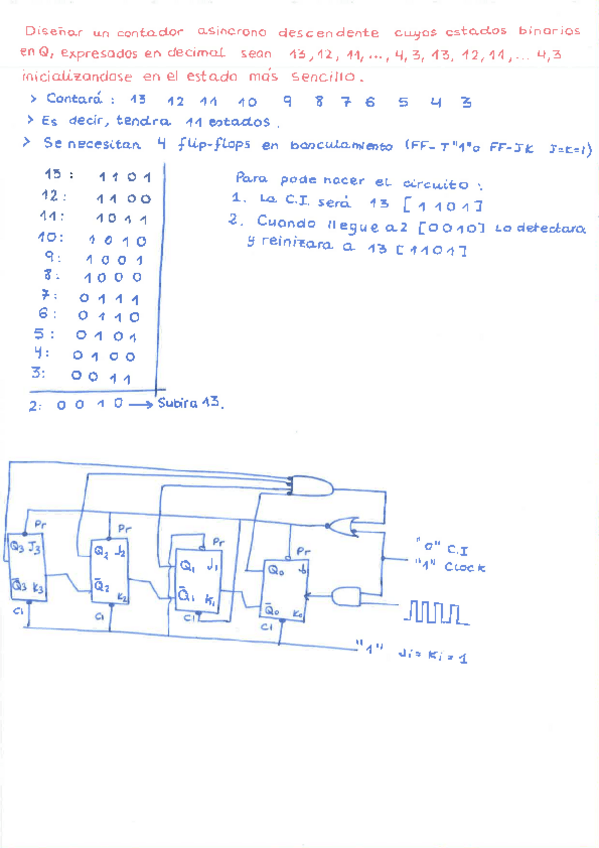 Diseñar un contador asincrono descendente cuyos estados binarios
en Q, expresados en decimal sean 13, 12, 11, ..., 4, 3, 13, 12, 11, ... 4,3
inicializandose en el estado más sencillo.
> Contará : 13 12 11 10 9 8 7 6 5 4 3
> Es decir, tendra 11 estados.
> Se necesitan 4 flip-flops en basculamiento (FF-T "1" o FF-JK J=K=1)
13 : 1 1 0 1
12 : 1 1 0 0
11 : 1 0 1 1
10 : 1 0 1 0
9 : 1 0 0 1
8 : 1 0 0 0
7 : 0 1 1 1
6 : 0 1 1 0
5 : 0 1 0 1
4 : 0 1 0 0
3 : 0 0 1 1
2 : 0 0 1 0 → Subira 13.
Para pode hacer el circuito :
1. La C.I. será 13 [1 1 0 1]
2. Cuando llegue a 2 [0010] lo detectara
y reinizara a 13 [1101]
Pr Pr Pr Pr
Q3 J3 Q2 J2 Q1 J1 Q0 J0
Q̅3 K3 Q̅2 K2 Q̅1 K1 Q̅0 K0
Cl Cl Cl Cl
"0" C.I
"1" Clock
"1" Ji = Ki = 1